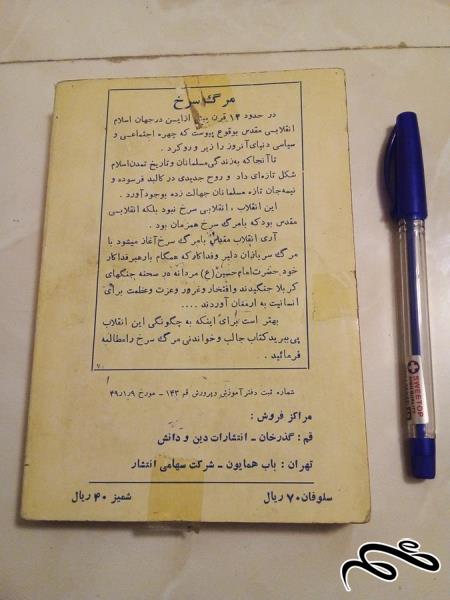 مرگ سرخ
در حدود ۱۴ قرن پیش ازایـن درجهان اسلام
انقلابـی مقدس بوقوع پیوست که چهره اجتماعـی و
سیاسی دنیای آنروز را زیر و رو کرد .
تا آنجا که به زندگی مسلمانان و تاریخ تمدن اسلام
شکل تازه‌ای داد و روح جدیدی در کالبد فرسوده و
نیمه‌جان تازه مسلمانان جهالت زده بوجود آورد .
این انقلاب ، انقلابی سرخ نبود بلکه انقلابـی
مقدس بود که با مرگ سرخ همزمان بود .
آری انقلاب مقدس با مرگ سرخ آغاز میشود با
مرگ سربازان دلیر و فداکار که همگام با رهبر فداکار
خود حضرت امام حسین (ع) مردانه در صحنه جنگهای
کربلا جنگیدند و افتخار و غرور و عزت و عظمت برای
انسانیت به ارمغان آوردند ....
بهتر است برای اینکه به چگونگی این انقلاب
پی ببرید کتاب جالب و خواندنی مرگ سرخ را مطالعه
فرمائید .
۷۰
شماره ثبت دفتر آموزش و پرورش قم ۱۴۳ – مورخ ۴۹ر۹ر۱
مراکز فروش :
قم : گذرخان – انتشارات دین و دانش
تهران : باب همایون – شرکت سهامی انتشار
سلوفان ۷۰ ریال
شمیز ۴۰ ریال
SWEETOP